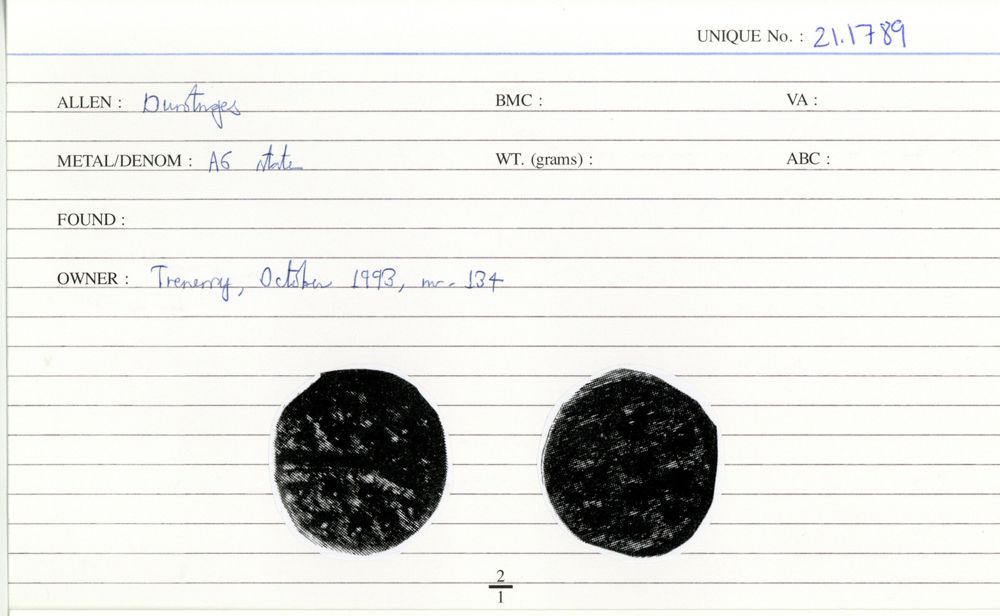 UNIQUE No. : 21.1789
ALLEN : Durotriges BMC : VA :
METAL/DENOM : AG stater WT. (grams) : ABC :
FOUND :
OWNER : Trenerry, October 1993, nr. 134
2
1